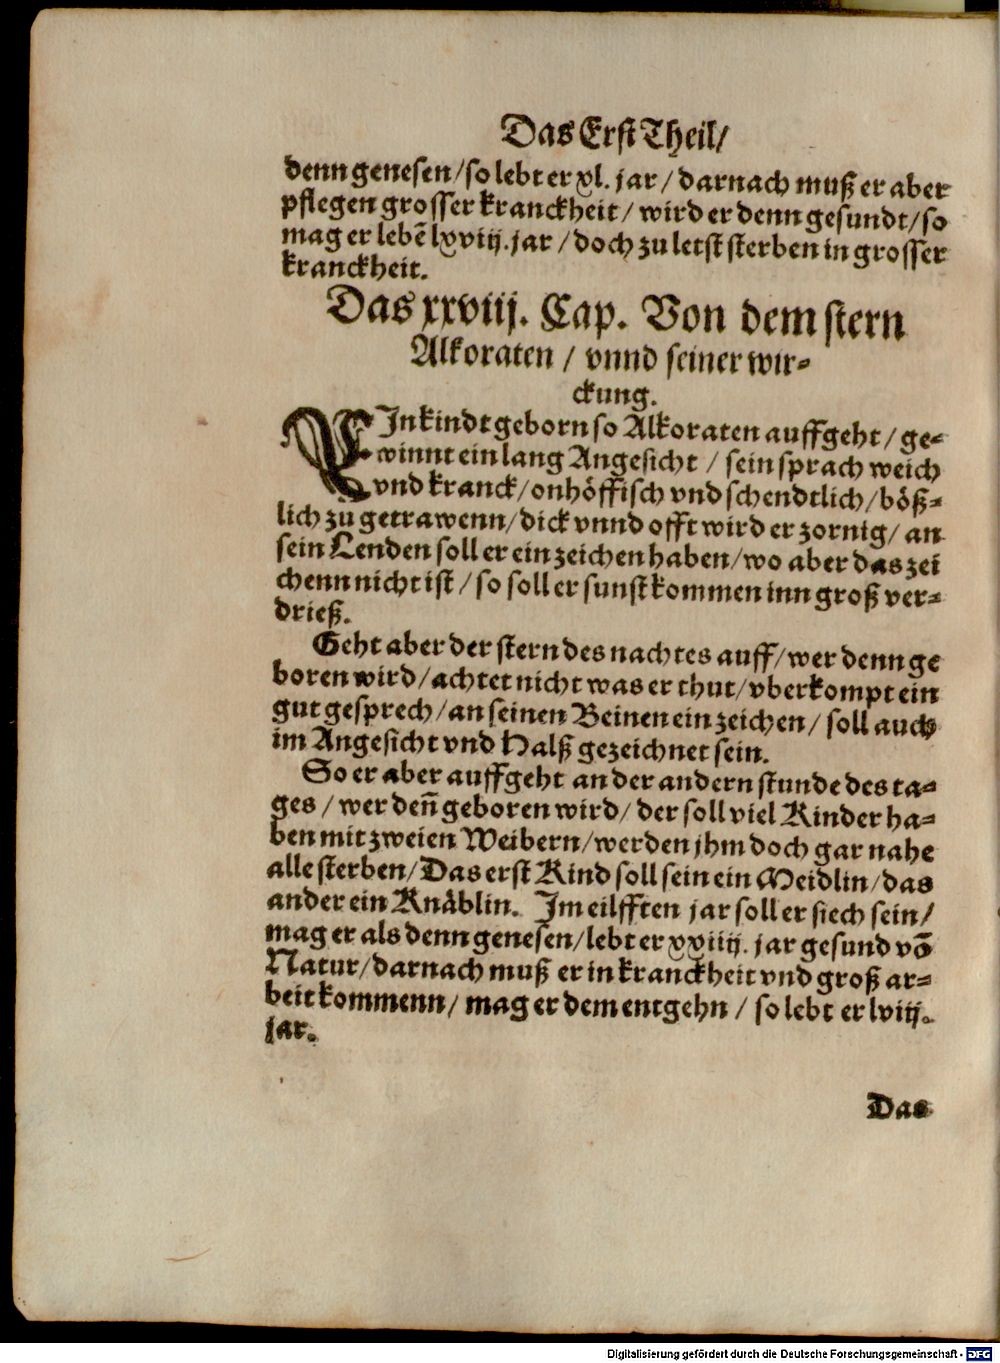 Das Erst Theil/
denn genesen/so lebt er xl. jar/darnach muß er aber
pflegen grosser kranckheit/wird er denn gesundt/so
mag er lebẽ lxviij. jar/doch zu letst sterben in grosser
kranckheit.
Das xxviij. Cap. Von dem stern
Alkoraten/vnnd seiner wir⸗
ckung.
EIn kindt geborn so Alkoraten auffgeht/ge⸗
winnt ein lang Angesicht/sein sprach weich
vnd kranck/onhöffisch vnd schendtlich/böß⸗
lich zu getrawenn/dick vnnd offt wird er zornig/an
sein Lenden soll er ein zeichen haben/wo aber das zei
chenn nicht ist/so soll er sunst kommen inn groß ver⸗
drieß.
Geht aber der stern des nachtes auff/wer denn ge
boren wird/achtet nicht was er thut/vberkompt ein
gut gesprech/an seinen Beinen ein zeichen/soll auch
im Angesicht vnd Halß gezeichnet sein.
So er aber auffgeht an der andern stunde des ta⸗
ges/wer deñ geboren wird/der soll viel Kinder ha⸗
ben mit zweien Weibern/werden jhm doch gar nahe
alle sterben/Das erst Kind soll sein ein Meidlin/das
ander ein Knäblin. Im eilfften jar soll er siech sein/
mag er als denn genesen/lebt er xxiiij. jar gesund võ
Natur/darnach muß er in kranckheit vnd groß ar⸗
beit kommenn/mag er dem entgehn/so lebt er lviij.
jar.
Das
Digitalisierung gefördert durch die Deutsche Forschungsgemeinschaft - DFG